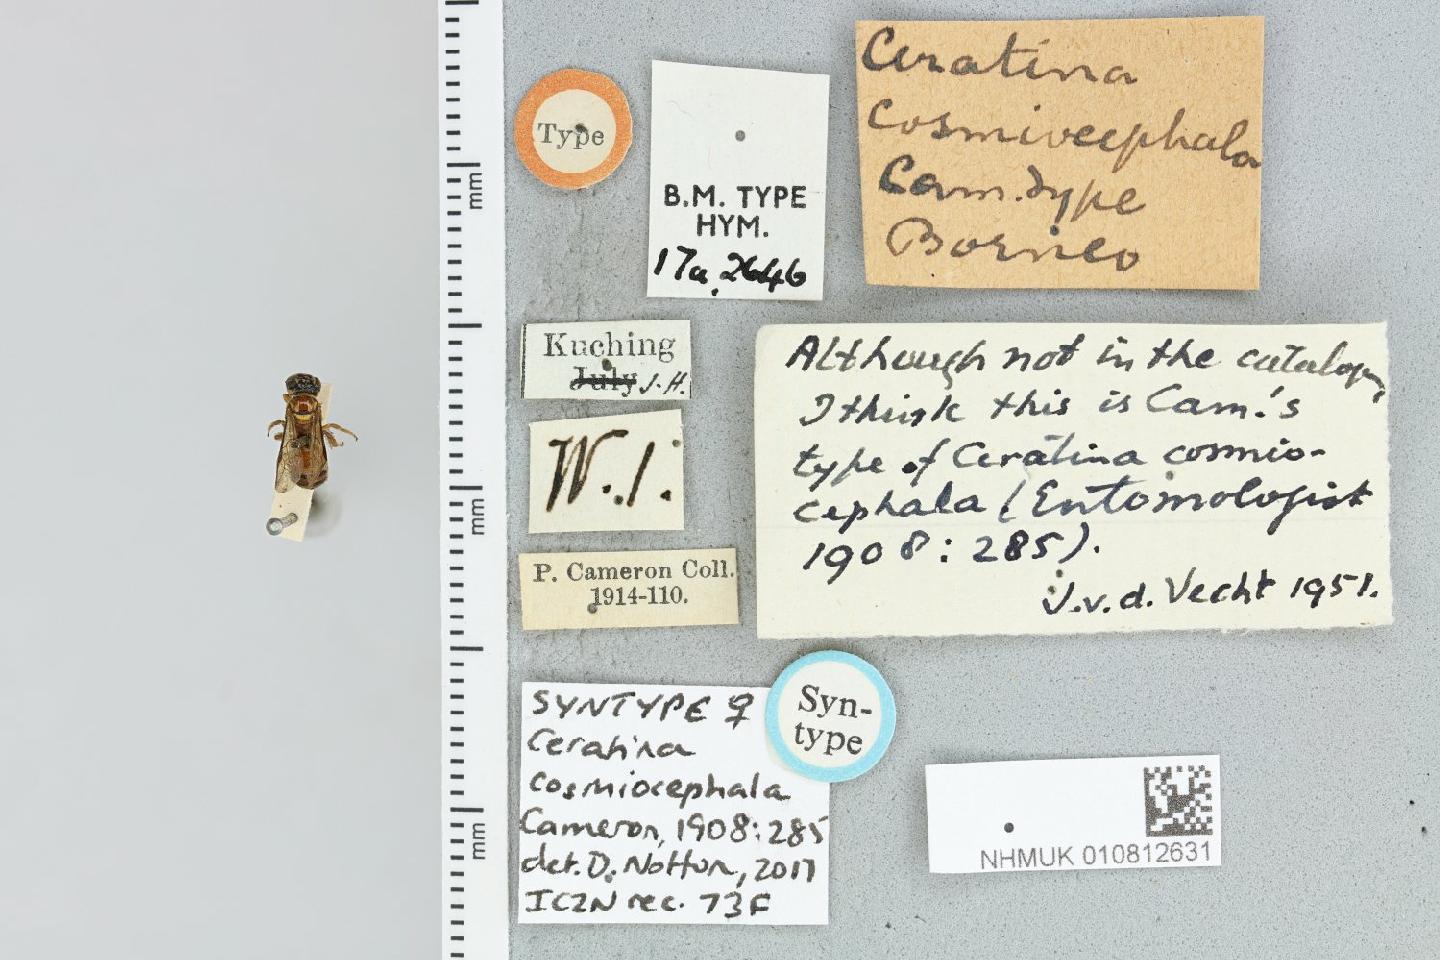 Type
B.M. TYPE
HYM.
17a.2646
Ceratina
Cosmiocephala
Cam. type
Borneo
Kuching
July J.H.
W.1.
P. Cameron Coll.
1914-110.
Although not in the catalogue,
I think this is Cam.'s
type of Ceratina cosmio-
cephala (Entomologist
1908: 285).
J.v.d. Vecht 1951.
SYNTYPE ♀
Ceratina
cosmiocephala
Cameron, 1908: 285
det. D. Notton, 2017
ICZN rec. 73F
Syn-
type
NHMUK 010812631
mm
mm
mm